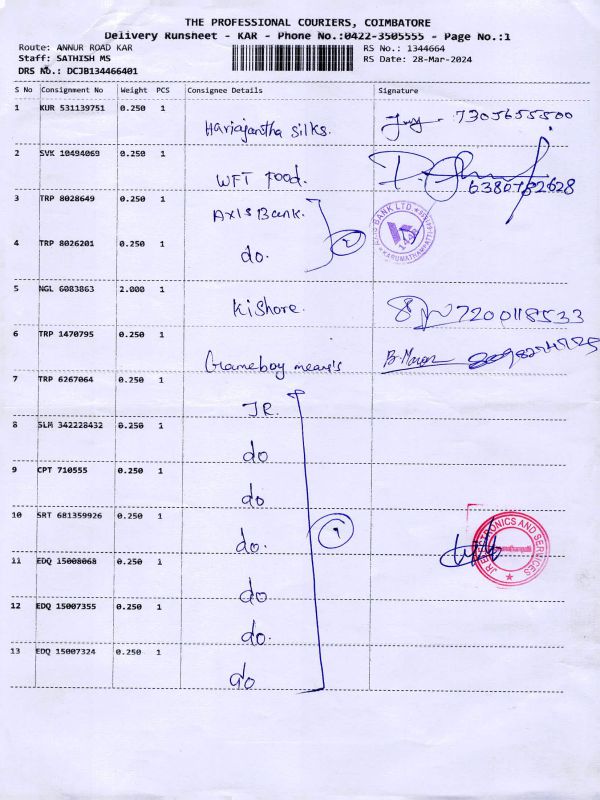 THE PROFESSIONAL COURIERS, COIMBATORE
Delivery Runsheet - KAR - Phone No.:0422-3505555 - Page No.:1
Route: ANNUR ROAD KAR
RS No.: 1344664
Staff: SATHISH MS
RS Date: 28-Mar-2024
DRS No.: DCJB134466401
S No Consignment No Weight PCS Consignee Details Signature
1 KUR 531139751 0.250 1
silks. 7305655500
2 SVK 10494069 0.250 1
WFT Food. 6380782628
3 TRP 8028649 0.250 1
Axis Bank.
BANK LTD
KARUMATHAMPATTI
4 TRP 8026201 0.250 1
do.
5 NGL 6083863 2.000 1
Kishore. 7200118533
6 TRP 1470795 0.250 1
Gameboy
7 TRP 6267064 0.250 1
JR.
8 SLM 342228432 0.250 1
do
9 CPT 710555 0.250 1
do
10 SRT 681359926 0.250 1
do.
JR ELECTRONICS AND SERVICES
11 EDQ 15008068 0.250 1
do
12 EDQ 15007355 0.250 1
do.
13 EDQ 15007324 0.250 1
do